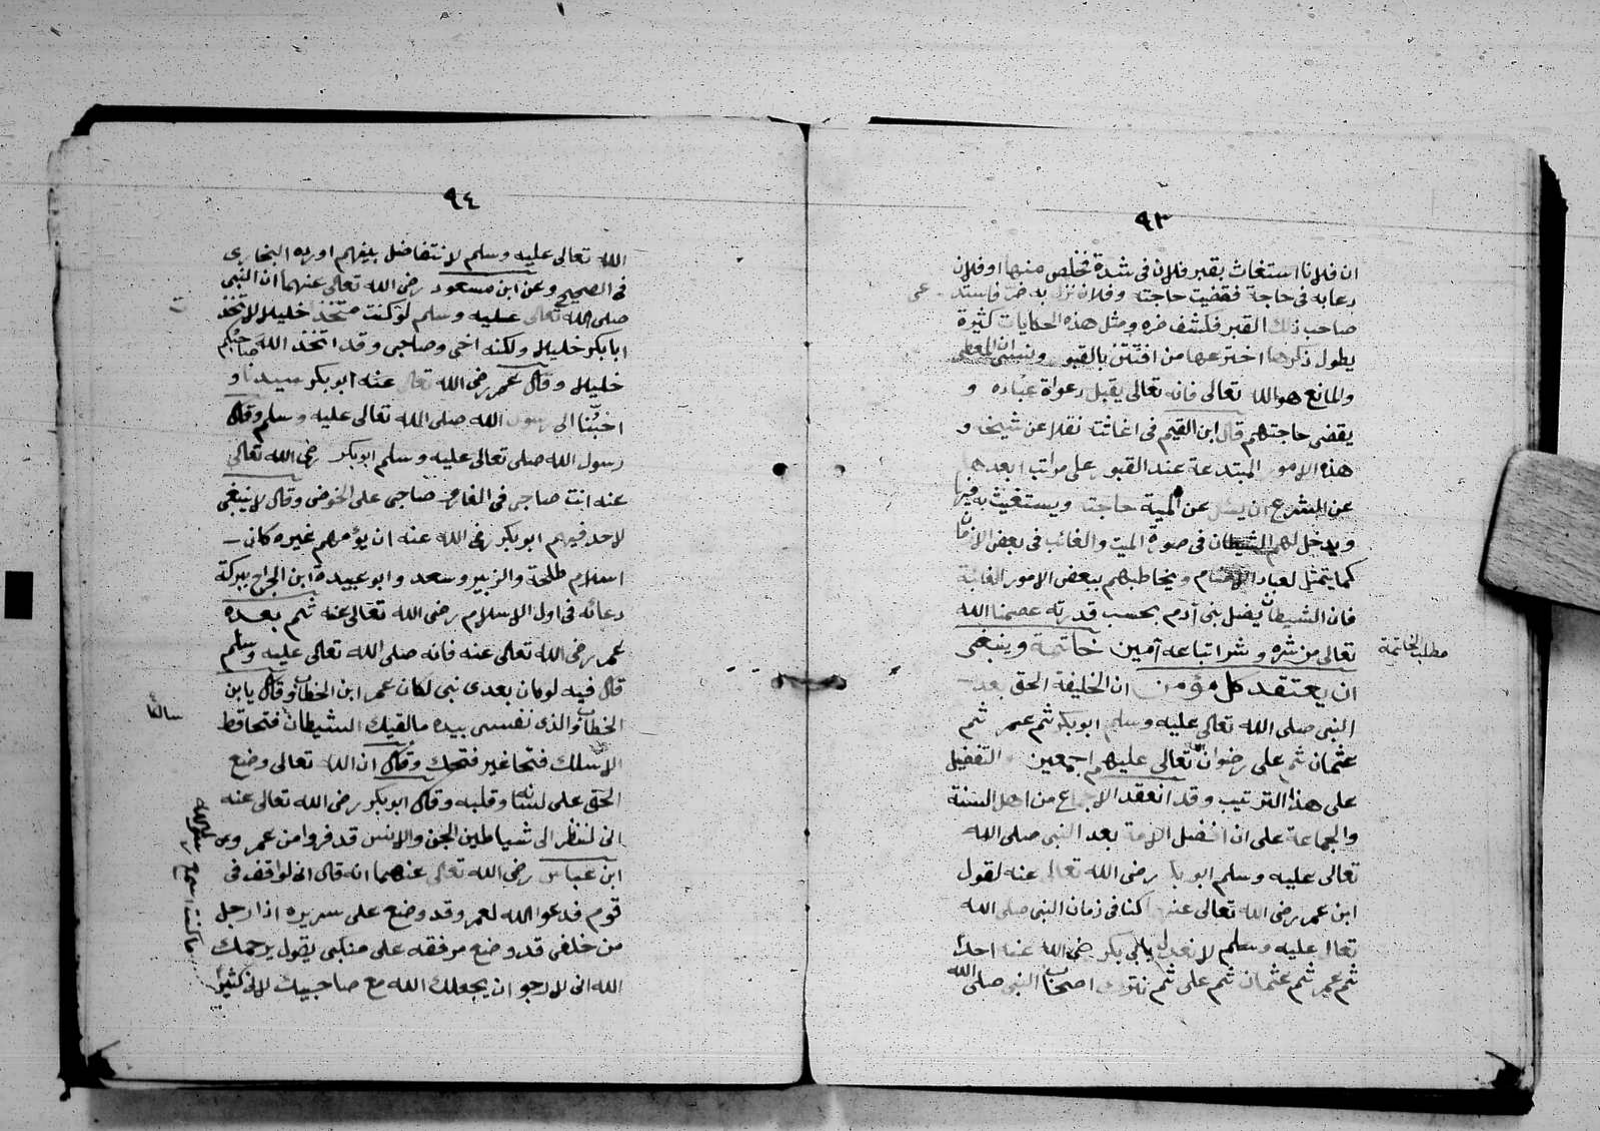 ٩٣
ان فلانا استغاث بقبر فلان فى شدة فخلص منها او فلان
دعا به فى حاجة فقضيت حاجته وفلان نزل به ضر فاستد عى
صاحب ذلك القبر فكشف ضره ومثل هذه الحكايات كثيرة
يطول ذكرها اخترعها من افتتن بالقبور المعطى
والمانع هو الله تعالى فانه تعالى يقبل دعواة عباده و
يقضى حاجتهم قال ابن القيم فى اغاثته نقلا عن شيخه و
هذه الامور المبتدعة عند القبور على مراتب ابعدها
عن الشرع ان يسئل عن الميت حاجته ويستغيث به فيها
ويدخل لهم الشيطان فى صورة الميت والغائب فى بعض الازمان
كما يتمثل لعباد الاصنام ويخاطبهم ببعض الامور الغائبة
فان الشيطان يضل بنى آدم بحسب قدرته عصمنا الله
تعالى من شره وشر اتباعه آمين خاتمة وينبغى
مطلب الخاتمة
ان يعتقد كل مؤمن ان الخليفة الحق بعد
النبى صلى الله تعالى عليه وسلم ابوبكر ثم عمر ثم
عثمان ثم على رضوان الله تعالى عليهم اجمعين والتفضيل
على هذا الترتيب وقد انعقد الاجماع من اهل السنة
والجماعة على ان افضل الامة بعد النبى صلى الله
تعالى عليه وسلم ابوبكر رضى الله تعالى عنه لقول
ابن عمر رضى الله تعالى عنه كنا فى زمان النبى صلى الله
تعالى عليه وسلم لا نعدل بابى بكر رضى الله عنه احدا
ثم عمر ثم عثمان ثم على ثم نترك اصحاب النبى صلى الله
٩٤
الله تعالى عليه وسلم لا نتفاضل بينهم اورده البخارى
فى الصحيح وعن ابن مسعود رضى الله تعالى عنهما ان النبى
صلى الله تعالى عليه وسلم لو كنت متخذ خليلا لاتخذت
ابابكر خليلا ولكنه اخى وصاحبى وقد اتخذ الله صاحبكم
خليلا وقال عمر رضى الله تعالى عنه ابوبكر سيدنا و
احبنا الى رسول الله صلى الله تعالى عليه وسلم وقال
رسول الله صلى تعالى عليه وسلم ابوبكر رضى الله تعالى
عنه انت صاحبى فى الغار صاحبى على الحوض وقال لا ينبغى
لاحد فيهم ابوبكر رضى الله عنه ان يؤمهم غيره كان
اسلام طلحة والزبير وسعد وابو عبيدة ابن الجراح ببركة
دعائه فى اول الاسلام رضى الله تعالى عنه ثم بعده
عمر رضى الله تعالى عنه فانه صلى الله تعالى عليه وسلم
قال فيه لو كان بعدى نبى لكان عمر ابن الخطاب وقال يا ابن
الخطاب والذى نفسى بيده ما لقيك الشيطان فجا قط
سالكا
الا سلك فجا غير فجك وقال ان الله تعالى وضع
الحق على لسانه وقلبه وقال ابوبكر رضى الله تعالى عنه
انى لنظر الى شياطين الجن والانس قد فروا من عمر وعن
ابن عباس رضى الله تعالى عنهما انه قال انى لواقف فى
قوم فدعوا الله لعمر وقد وضع على سريره اذا رجل
من خلفى قد وضع مرفقه على منكبى يقول يرحمك
الله انى لارجو ان يجعلك الله مع صاحبيك لانى كثيرا
ما كنت اسمع رسول الله